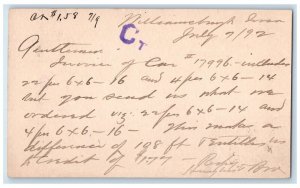 ax #1,58 7/9
Williamsburgh Iowa
July 7/92
CT
Gentlemen
Invoice of Car # 17996 - includes
22 pcs 6x6 - 16 and 4 pcs 6x6 - 14
but you send us what we
ordered viz: 22 pcs 6x6 - 14 and
4 pcs 6x6 - 16 - This makes a
difference of 108 ft Entitles us
to Credit of
Bro